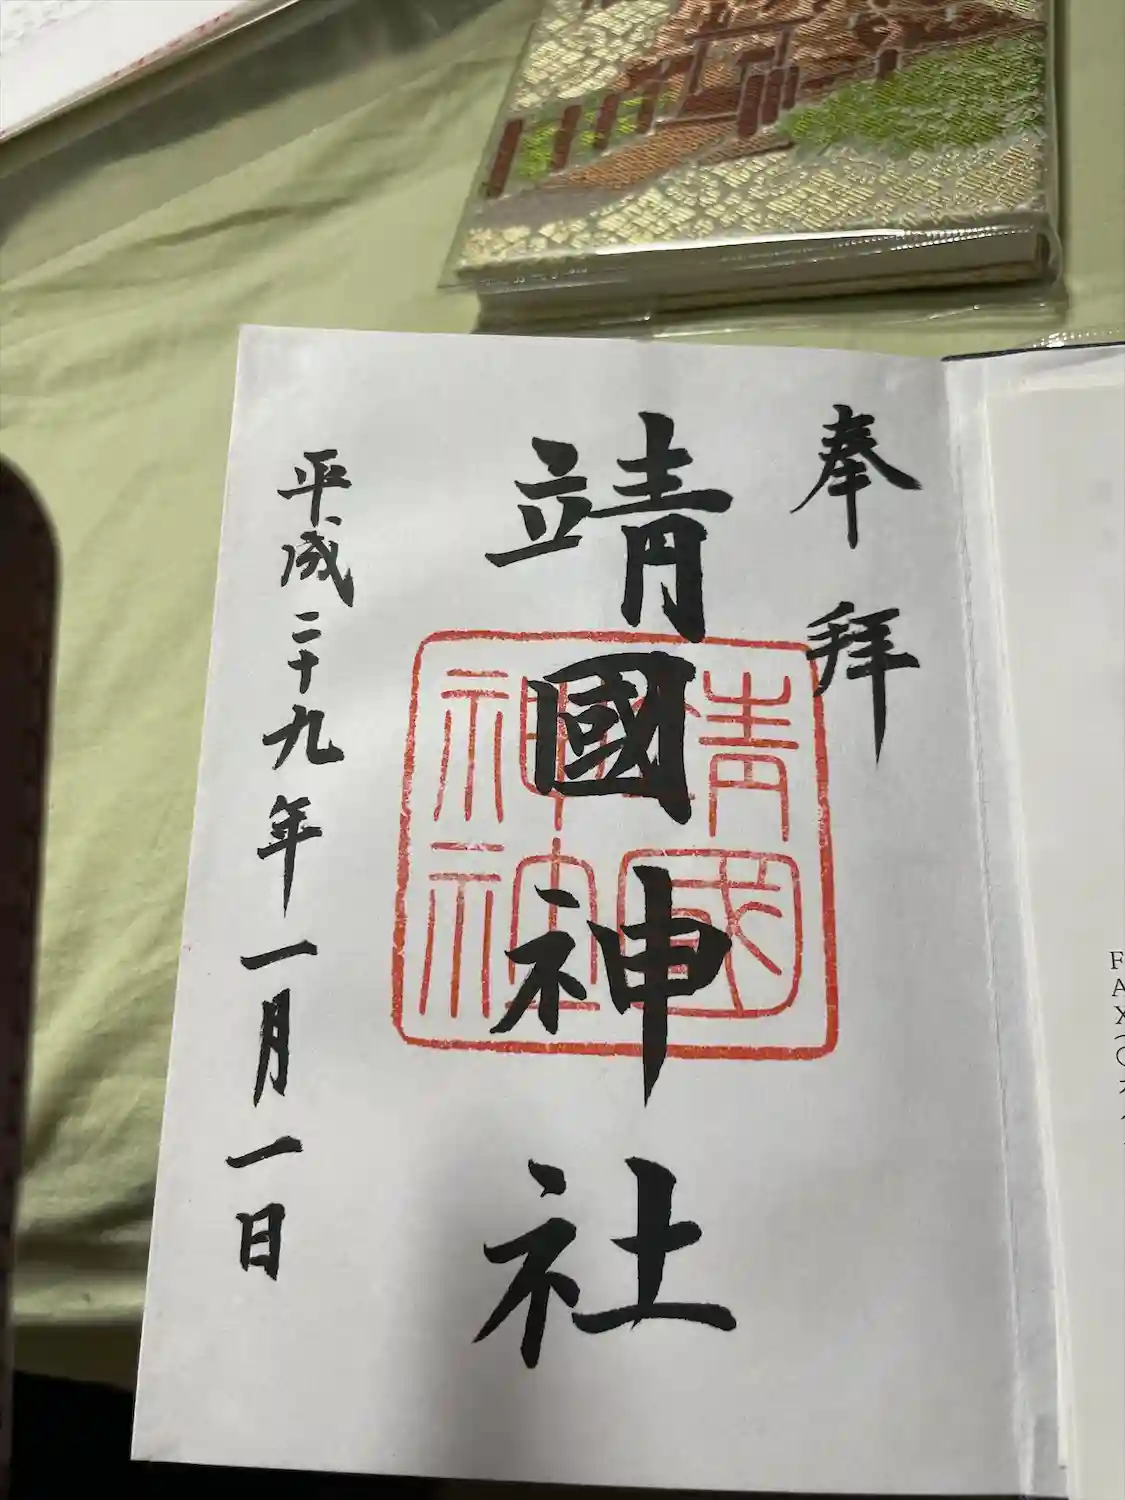 奉拝
靖國神社
靖國神社
平成二十九年一月一日
FAX